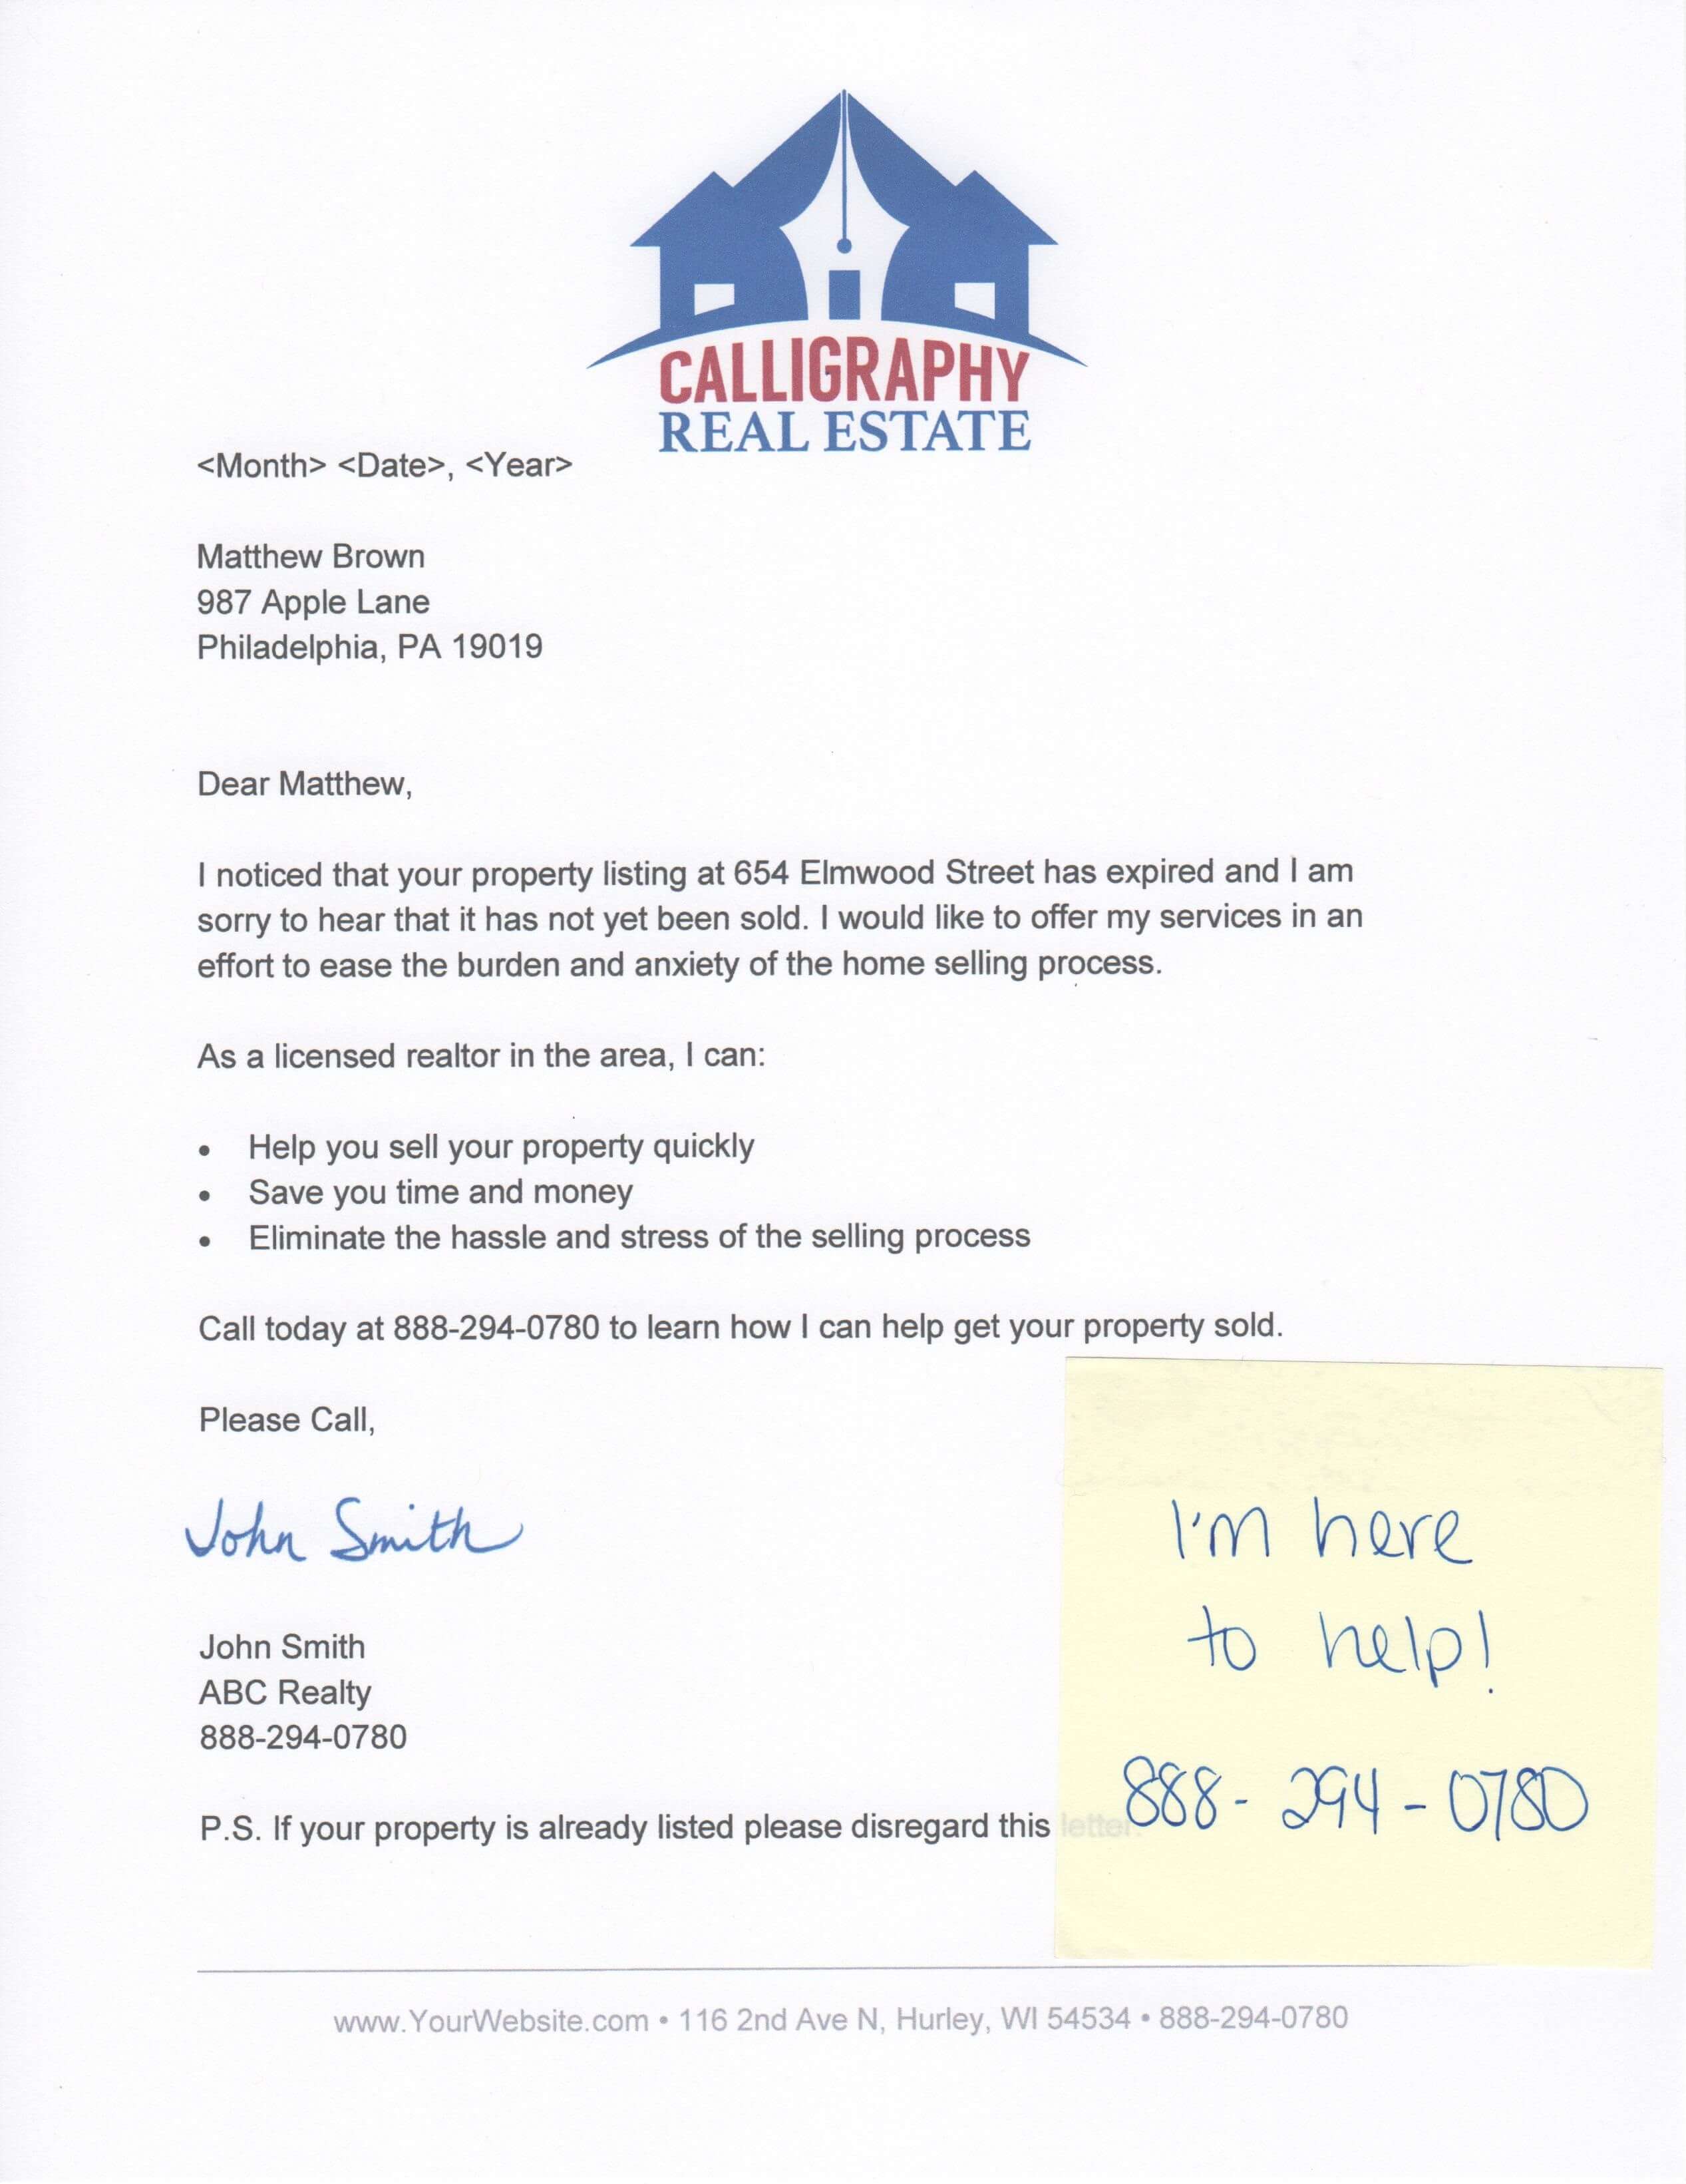 CALLIGRAPHY
REAL ESTATE
<Month> <Date>, <Year>
Matthew Brown
987 Apple Lane
Philadelphia, PA 19019
Dear Matthew,
I noticed that your property listing at 654 Elmwood Street has expired and I am
sorry to hear that it has not yet been sold. I would like to offer my services in an
effort to ease the burden and anxiety of the home selling process.
As a licensed realtor in the area, I can:
• Help you sell your property quickly
• Save you time and money
• Eliminate the hassle and stress of the selling process
Call today at 888-294-0780 to learn how I can help get your property sold.
Please Call,
John Smith
John Smith
ABC Realty
888-294-0780
P.S. If your property is already listed please disregard this letter.
I'm here
to help!
888-294-0780
www.YourWebsite.com • 116 2nd Ave N, Hurley, WI 54534 • 888-294-0780